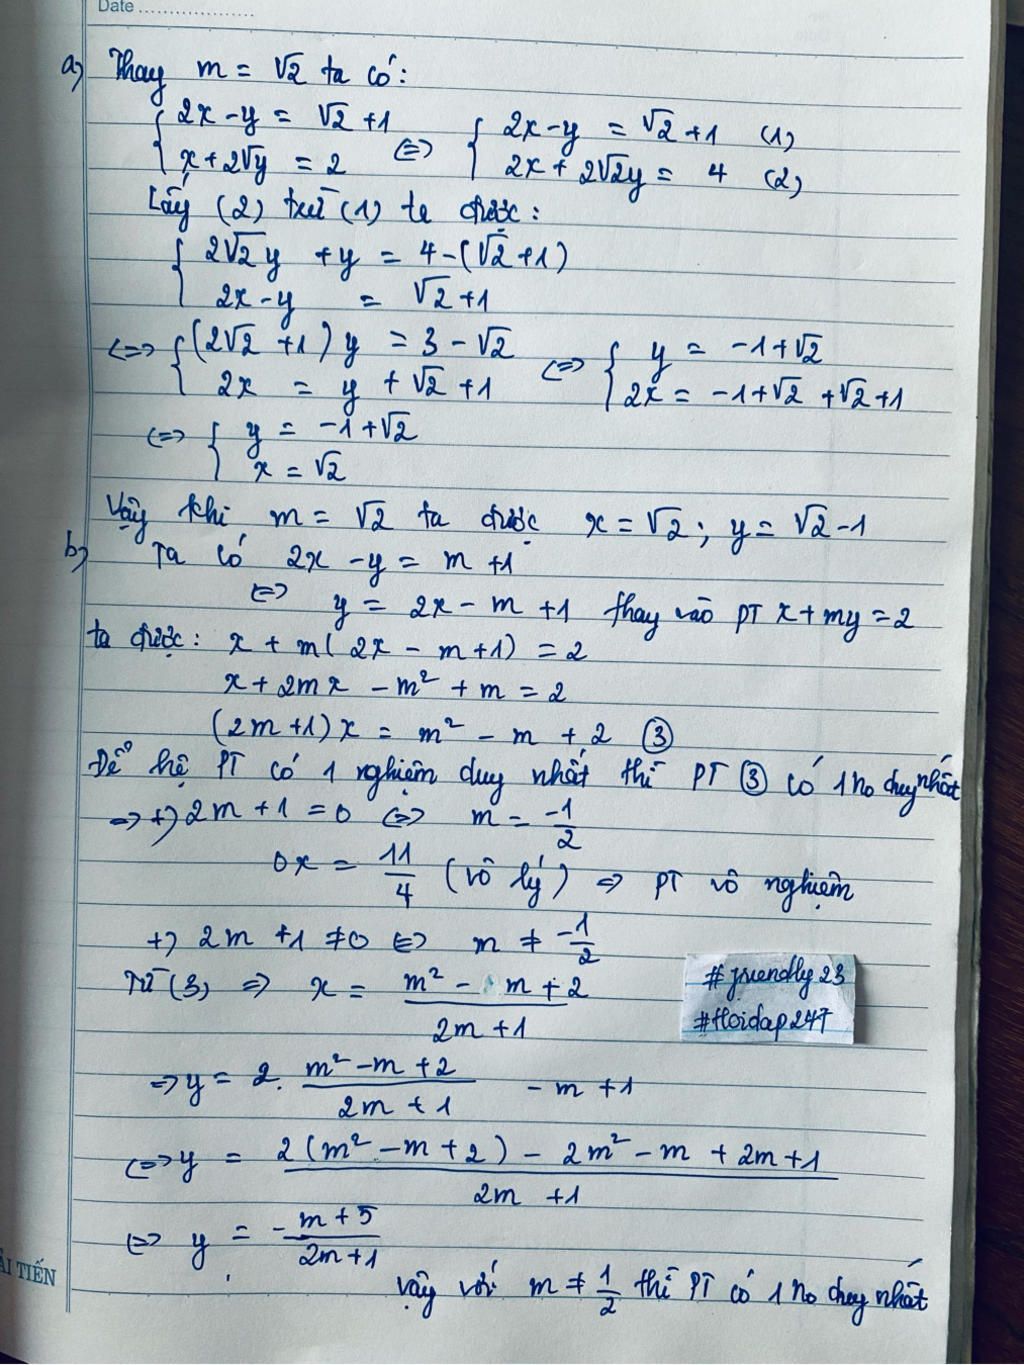 Date ..................
a) Thay m = √2 ta có:
{ 2x - y = √2 + 1 ⇔ { 2x - y = √2 + 1 (1)
{ x + 2√y = 2 { 2x + 2√2y = 4 (2)
Lấy (2) trừ (1) ta được:
{ 2√2 y + y = 4 - (√2 + 1)
{ 2x - y = √2 + 1
⇔ { (2√2 + 1) y = 3 - √2 ⇔ { y = -1 + √2
{ 2x = y + √2 + 1 { 2x = -1 + √2 + √2 + 1
⇔ { y = -1 + √2
{ x = √2
Vậy khi m = √2 ta được x = √2 ; y = √2 - 1
b) Ta có 2x - y = m + 1
⇔ y = 2x - m + 1 thay vào PT x + my = 2
ta được: x + m( 2x - m + 1) = 2
x + 2mx - m² + m = 2
(2m + 1) x = m² - m + 2 ③
Để hệ PT có 1 nghiệm duy nhất thì PT ③ có 1 no duy nhất
=> +) 2m + 1 = 0 ⇔ m = -1/2
0x = 11/4 (vô lý) => PT vô nghiệm
+) 2m + 1 ≠ 0 ⇔ m ≠ -1/2
Từ (3) => x = (m² - m + 2)/(2m + 1)
=> y = 2. (m² - m + 2)/(2m + 1) - m + 1
⇔ y = (2(m² - m + 2) - 2m² - m + 2m + 1)/(2m + 1)
⇔ y = (-m + 5)/(2m + 1)
Vậy với m ≠ 1/2 thì PT có 1 no duy nhất
#friendly23
#Hoidap247
ẢI TIẾN